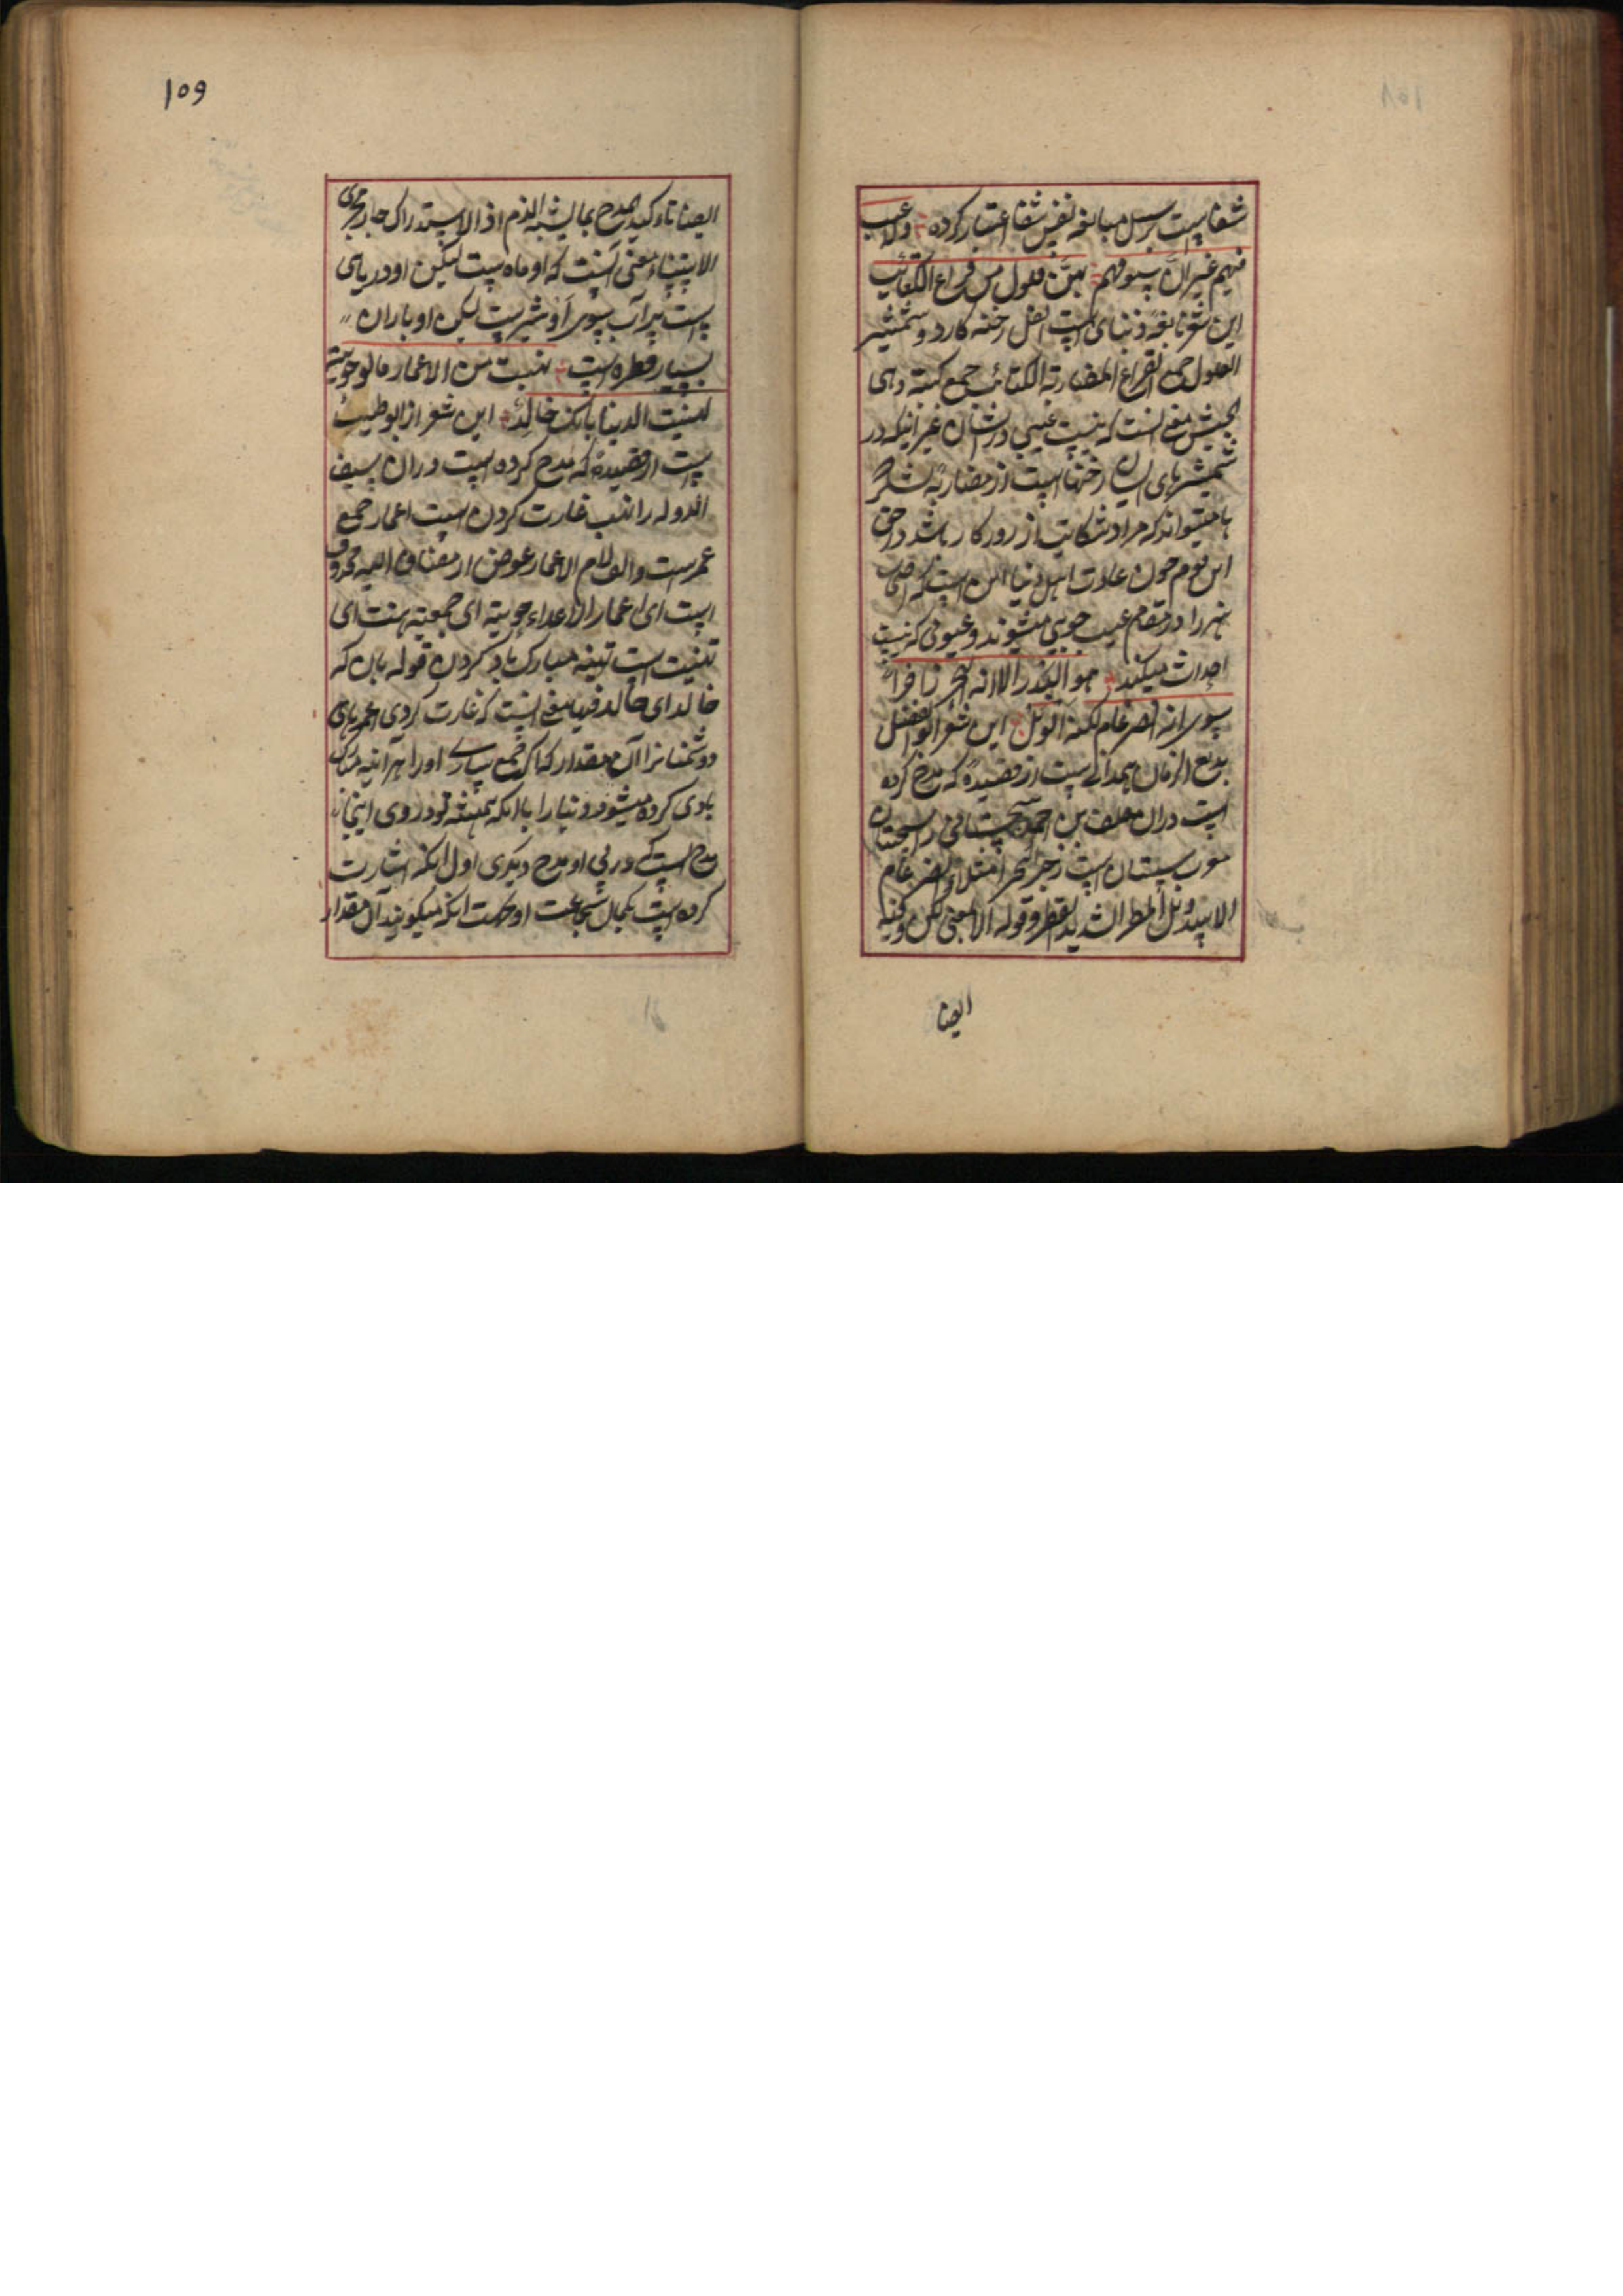 شفاست بر سبیل مبالغه نفس شفا اعتبار کرده ولا عیب
فیهم غیر ان سیوفهم بهن فلول من قراع الکتائب
این شعر نابغه ذبیانی است الفل رخنه کارد و شمشیر
الفلول جمع القراع المضاربة الکتائب جمع کتیبة وهی
الجیش معنی انست که نیست عیبی در ایشان غیر انیکه در
شمشیرهای ایشان رخنها است از مضاربه لشکر
ها میتواند که مراد شکایت از روزکار باشد در حق
این قوم چون عادت اهل دنیا این است که
هنر را در مقام عیب جویی میشوند و عیوبی که نیست
احداث میکنند هو البدر الا انه البحر زاخرا
سوی انه الضرغام لکنه الوبل این شعر ابو الفضل
بدیع الزمان همدانی است از قصیده که مدح کرده
است دران خلف بن احمد سجستانی را سجستان
معرب سیستان است زخر البحر امتلاء الضرغام
الاسد وبل المطر الشدید القطر وقوله الا بمعنی لکن وکنیه
ایضا
۱۵۹
ایضا تاکید المدح بما یشبه الذم اذ الاستدراک جار مجری
الاستثناء معنی آنست که او ماه است لیکن او دریای
است پر آب سوی او شیر است لیکن او باران
بسیار قطره است نهبت من الاعمار ما لو حویته
لهنیت الدنیا بانک خالد این شعر از ابو طیب
است از قصیده که مدح کرده است دران سیف
الدوله را نهب غارت کردن است اعمار جمع
عمر است والف لام الاعمار عوض از مضاف الیه محذوف
است ای اعمار الاعداء حویته ای جمعته هنت ای
تهنیت است تهنیه مبارک باد کردن قوله بان که
خالد ای خالد فیها معنی انست که غارت کردی عمرهای
دشمنانرا آن مقدار که اکر جمع سازی اورا هر آئینه مبارک
بادی کرده میشود دنیا را با انکه همیشه تو در وی اینجا
مدح است که در پی او مدح دیکری اول انکه اشارت
کرده است بکمال شجاعت او حکمت انکه میکویند آن مقدار